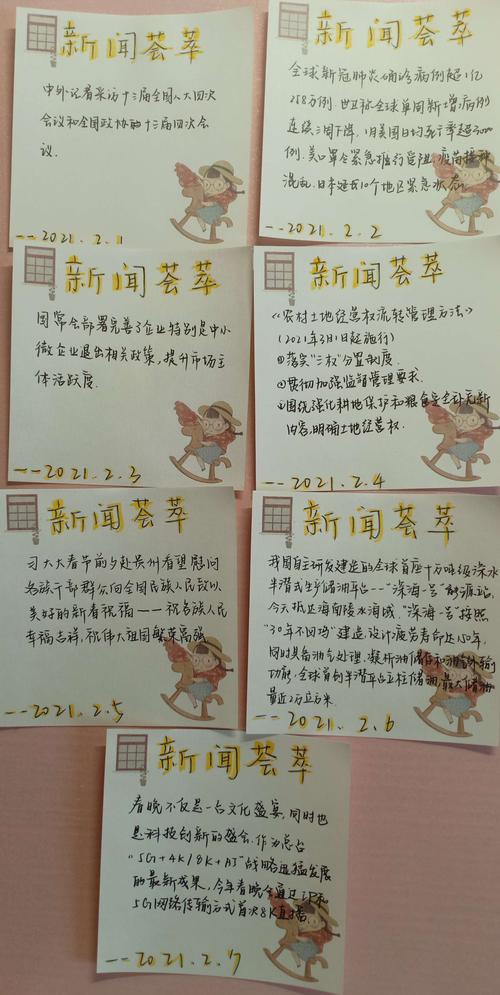 新闻荟萃
中外记者采访十三届全国人大四次
会议和全国政协的十三届四次会
议.
--2021.2.1
新闻荟萃
全球新冠肺炎确诊病例超1亿
258万例.世卫称全球单周新增病例
连续三周下降,1月美国日均死亡率超3000
例.美口罩令紧急推行受阻,疫苗接种
混乱.日本延长10个地区紧急状态.
--2021.2.2
新闻荟萃
国常会部署完善了企业特别是中小
微企业退出相关政策,提升市场主
体活跃度.
--2021.2.3
新闻荟萃
《农村土地经营权流转管理方法》
(2021年3月1日起施行)
①落实"三权"分置制度.
②贯彻加强监督管理要求.
③围绕强化耕地保护和粮食安全补充新
内容,明确土地经营权.
--2021.2.4
新闻荟萃
习大大春节前夕赴贵州看望慰问
各族干部群众向全国民族人民致以
美好的新春祝福——祝各族人民
幸福吉祥,祝伟大祖国繁荣富强
--2021.2.5
新闻荟萃
我国自主研发建造的全球首座十万吨级深水
半潜式生产储油平台--"深海一号"能源站,
今天抵达海南陵水海域."深海一号"按照
"30年不回坞"建造,设计疲劳寿命达150年,
同时具备油气处理、凝析油储存和油气外输
功能,全球首创半潜平台立柱储油,最大储油
量近2万立方米.
--2021.2.6
新闻荟萃
春晚不仅是一台文化盛宴,同时也
是科技创新的盛会.作为总台
"5G+4K/8K+AI"战略迅猛发展
的最新成果,今年春晚会通过IP和
5G网络传输方式首次8K直播.
--2021.2.7